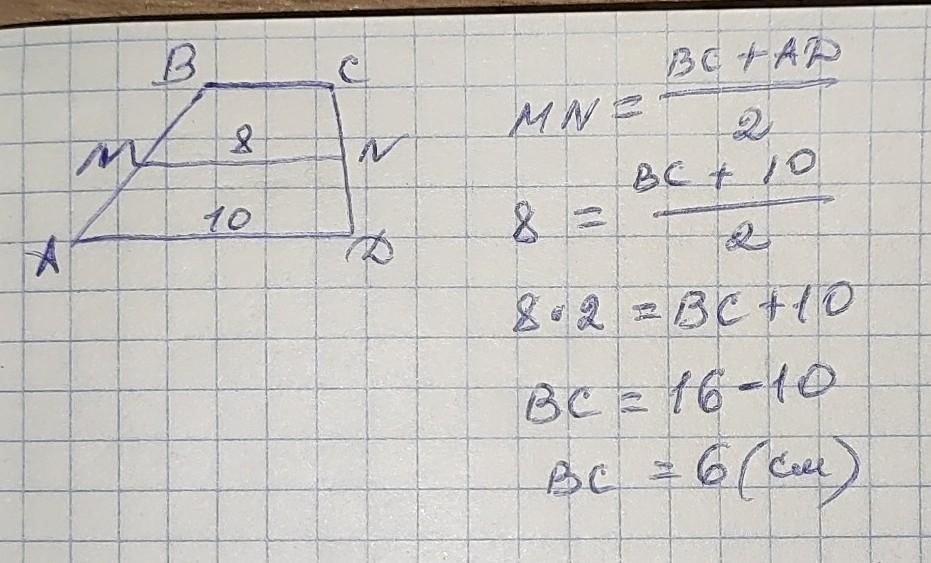 B C
M 8 N
10
A D
MN = (BC + AD)/2
8 = (BC + 10)/2
8·2 = BC + 10
BC = 16 - 10
BC = 6 (см)